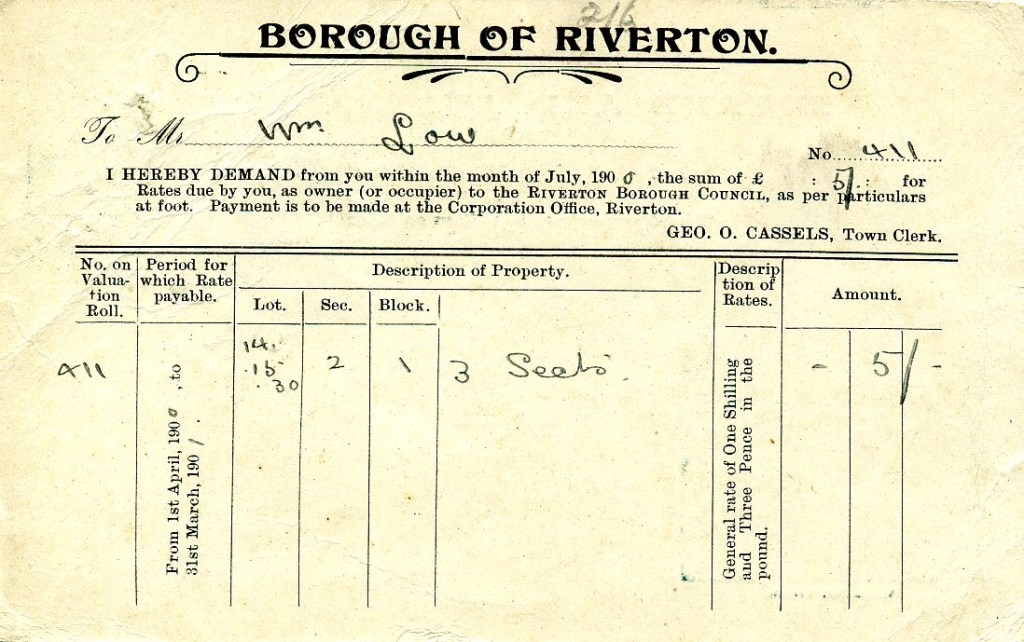 2/6
BOROUGH OF RIVERTON.
To Mr Wm Low
No. 411
I HEREBY DEMAND from you within the month of July, 1900, the sum of £ : 5/ : for
Rates due by you, as owner (or occupier) to the RIVERTON BOROUGH COUNCIL, as per particulars
at foot. Payment is to be made at the Corporation Office, Riverton.
GEO. O. CASSELS, Town Clerk.
No. on Valua-tion Roll.
Period for which Rate payable.
Description of Property.
Lot. Sec. Block.
Descrip tion of Rates.
Amount.
411
From 1st April, 1900, to
31st March, 1901.
14.
15
30
2 1 3 Sects.
General rate of One Shilling
and Three Pence in the
pound.
- 5/ -